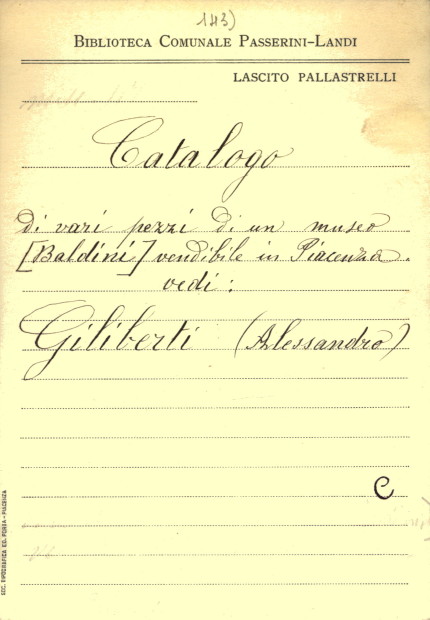 143)
BIBLIOTECA COMUNALE PASSERINI-LANDI
LASCITO PALLASTRELLI
Catalogo
di vari pezzi di un museo
[Baldini] vendibile in Piacenza.
vedi:
Giliberti (Alessandro)
C
SOC. TIPOGRAFICA ED. PORTA - PIACENZA